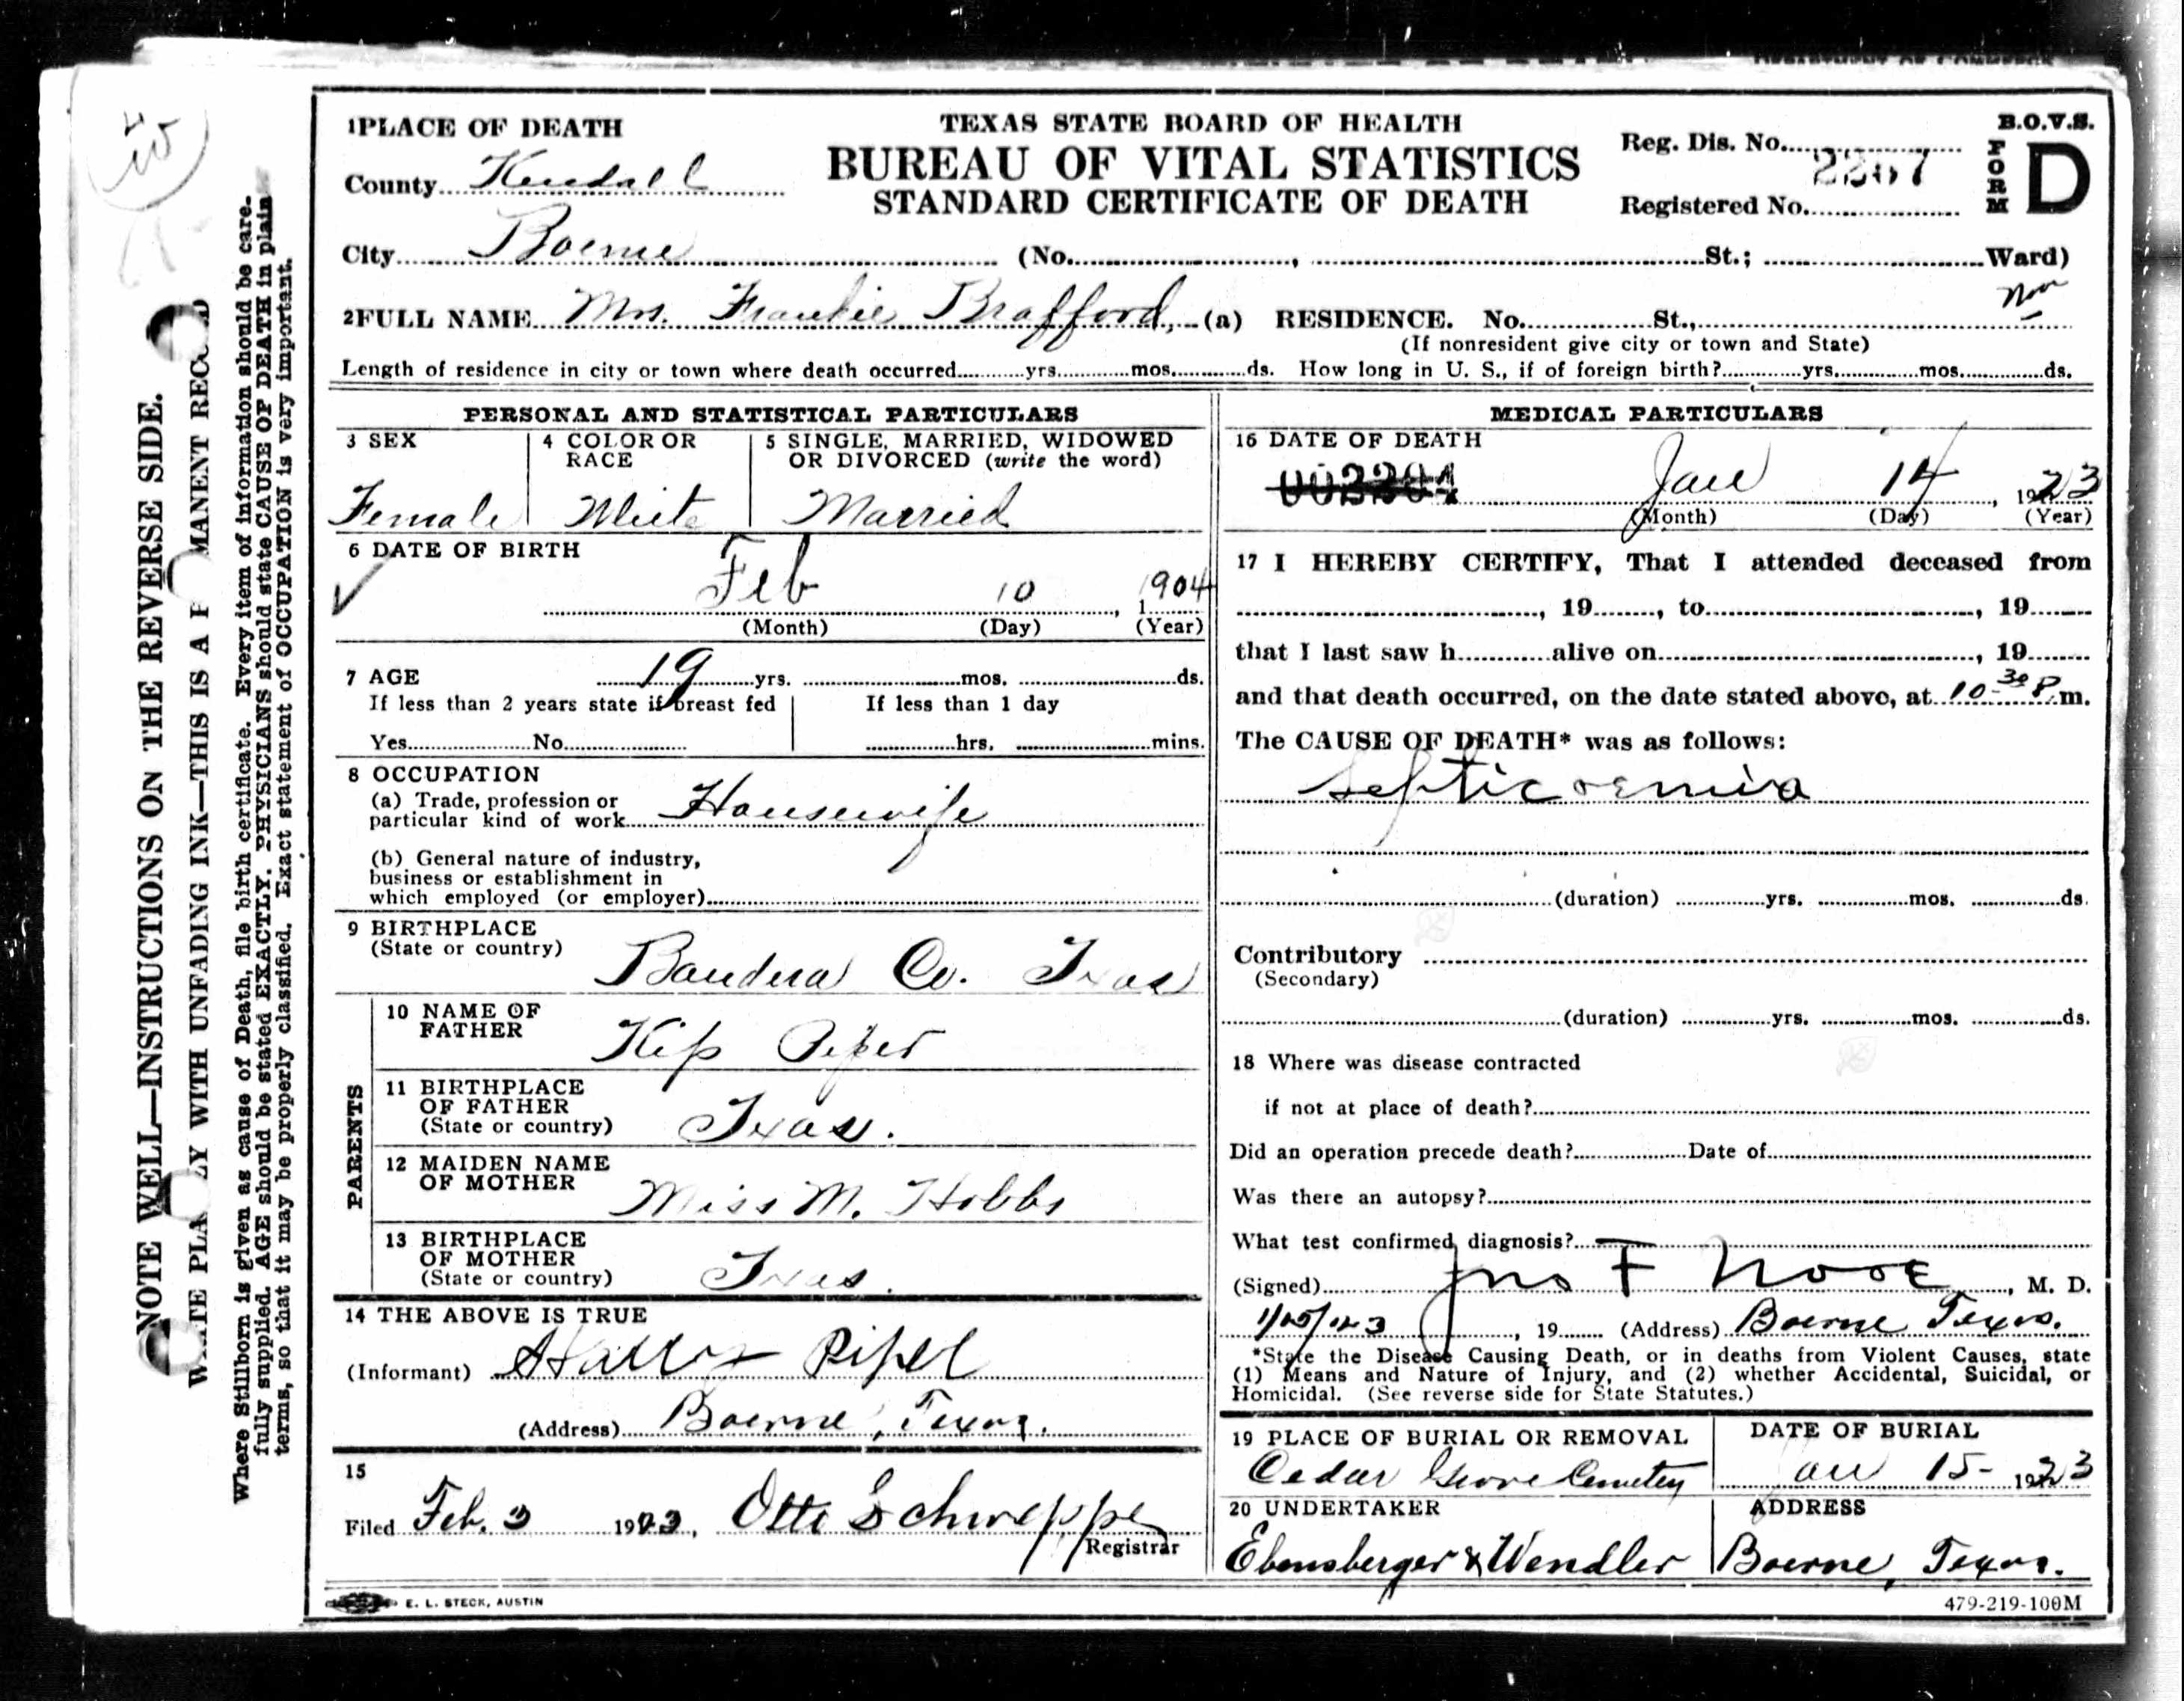 1PLACE OF DEATH
TEXAS STATE BOARD OF HEALTH
BUREAU OF VITAL STATISTICS
STANDARD CERTIFICATE OF DEATH
Reg. Dis. No.
2267
Registered No.
B.O.V.S.
FORM D
County Kendall
City Boerne (No. , St.; Ward)
2FULL NAME Mrs. Frankie Brafford, (a) RESIDENCE. No. St.,
(If nonresident give city or town and State)
Length of residence in city or town where death occurred yrs. mos. ds. How long in U. S., if of foreign birth? yrs. mos. ds.
PERSONAL AND STATISTICAL PARTICULARS
3 SEX
Female
4 COLOR OR
RACE
White
5 SINGLE, MARRIED, WIDOWED
OR DIVORCED (write the word)
Married
6 DATE OF BIRTH
Feb 10, 1904
(Month) (Day) (Year)
7 AGE 19 yrs. mos. ds.
If less than 2 years state if breast fed
Yes No
If less than 1 day
hrs. mins.
8 OCCUPATION
(a) Trade, profession or
particular kind of work Housewife
(b) General nature of industry,
business or establishment in
which employed (or employer)
9 BIRTHPLACE
(State or country)
Bandera Co. Texas
PARENTS
10 NAME OF
FATHER
Kip Piper
11 BIRTHPLACE
OF FATHER
(State or country) Texas.
12 MAIDEN NAME
OF MOTHER
Miss M. Hobbs
13 BIRTHPLACE
OF MOTHER
(State or country) Texas.
14 THE ABOVE IS TRUE
(Informant) Piper
(Address) Boerne, Texas.
15
Filed Feb. 3 1923, Otto Schweppe
Registrar
MEDICAL PARTICULARS
16 DATE OF DEATH
003304
Jan 14, 1923
(Month) (Day) (Year)
17 I HEREBY CERTIFY, That I attended deceased from
, 19 , to , 19
that I last saw h alive on , 19
and that death occurred, on the date stated above, at 10-30 P.m.
The CAUSE OF DEATH* was as follows:
Septicaemia
(duration) yrs. mos. ds.
Contributory
(Secondary)
(duration) yrs. mos. ds.
18 Where was disease contracted
if not at place of death?
Did an operation precede death? Date of
Was there an autopsy?
What test confirmed diagnosis?
(Signed) Jno F Nooe, M. D.
, 19 (Address) Boerne Texas.
*State the Disease Causing Death, or in deaths from Violent Causes, state
(1) Means and Nature of Injury, and (2) whether Accidental, Suicidal, or
Homicidal. (See reverse side for State Statutes.)
19 PLACE OF BURIAL OR REMOVAL
Cedar Grove Cemetery
DATE OF BURIAL
Jan 15- 1923
20 UNDERTAKER
Ebensberger & Wendler
ADDRESS
Boerne, Texas.
E. L. STECK, AUSTIN
479-219-100M
NOTE WELL—INSTRUCTIONS ON THE REVERSE SIDE.
WRITE PLAINLY WITH UNFADING INK—THIS IS A PERMANENT RECORD
Where Stillborn is given as cause of Death, file birth certificate. Every item of information should be care-
fully supplied. AGE should be stated EXACTLY. PHYSICIANS should state CAUSE OF DEATH in plain
terms, so that it may be properly classified. Exact statement of OCCUPATION is very important.